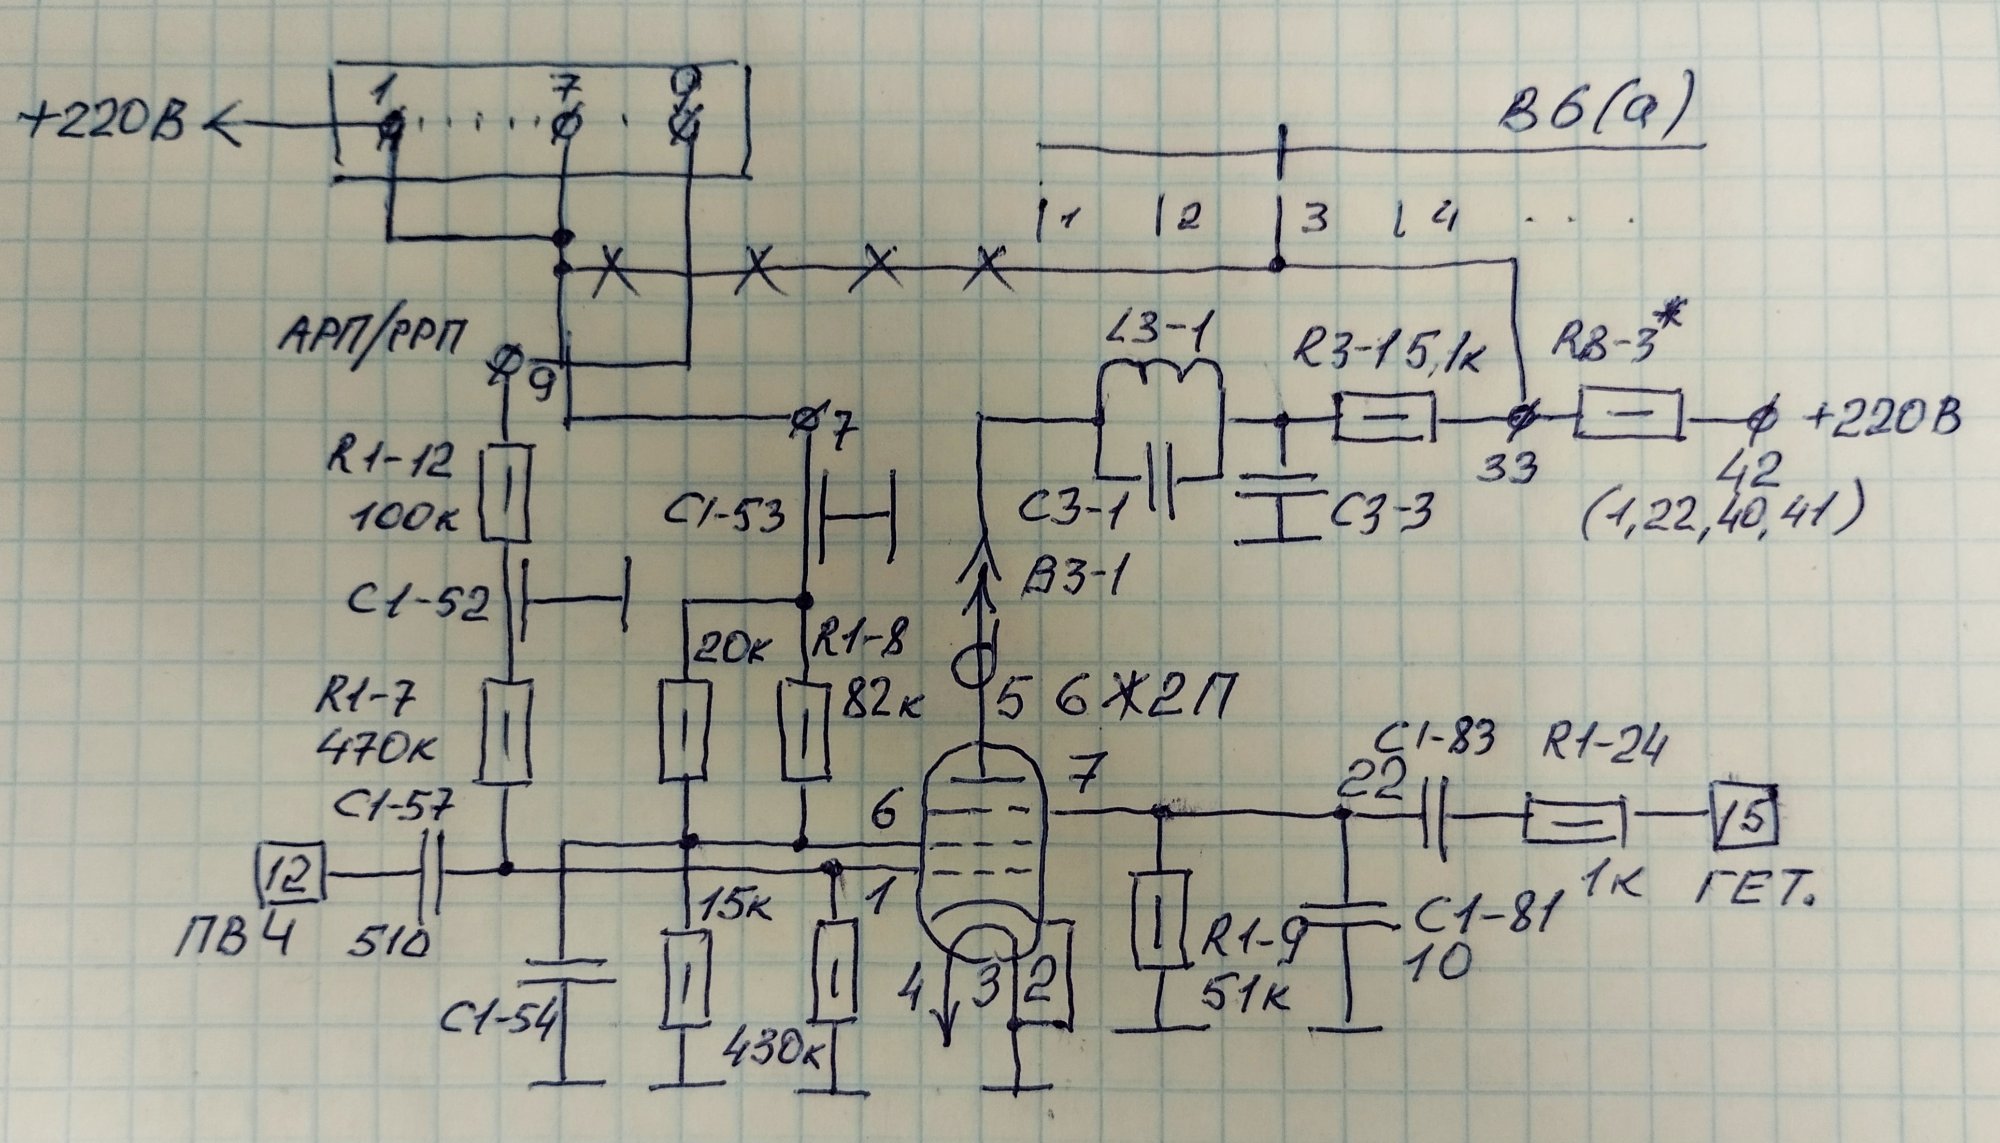 1 7 9
+220В
В6(а)
1 2 3 4 . . .
АРП/РРП
9
7
L3-1
R3-1 5,1к
R8-3*
+220В
33
42
(1,22,40,41)
R1-12
100к
С1-53
С3-1
С3-3
С1-52
В3-1
20к
R1-8
82к
R1-7
470к
5 6Ж2П
С1-83
R1-24
7
22
6
С1-57
12
15
1к
ГЕТ.
ПВ4
510
15к
1
R1-9
51к
С1-81
10
4 3 2
С1-54
430к